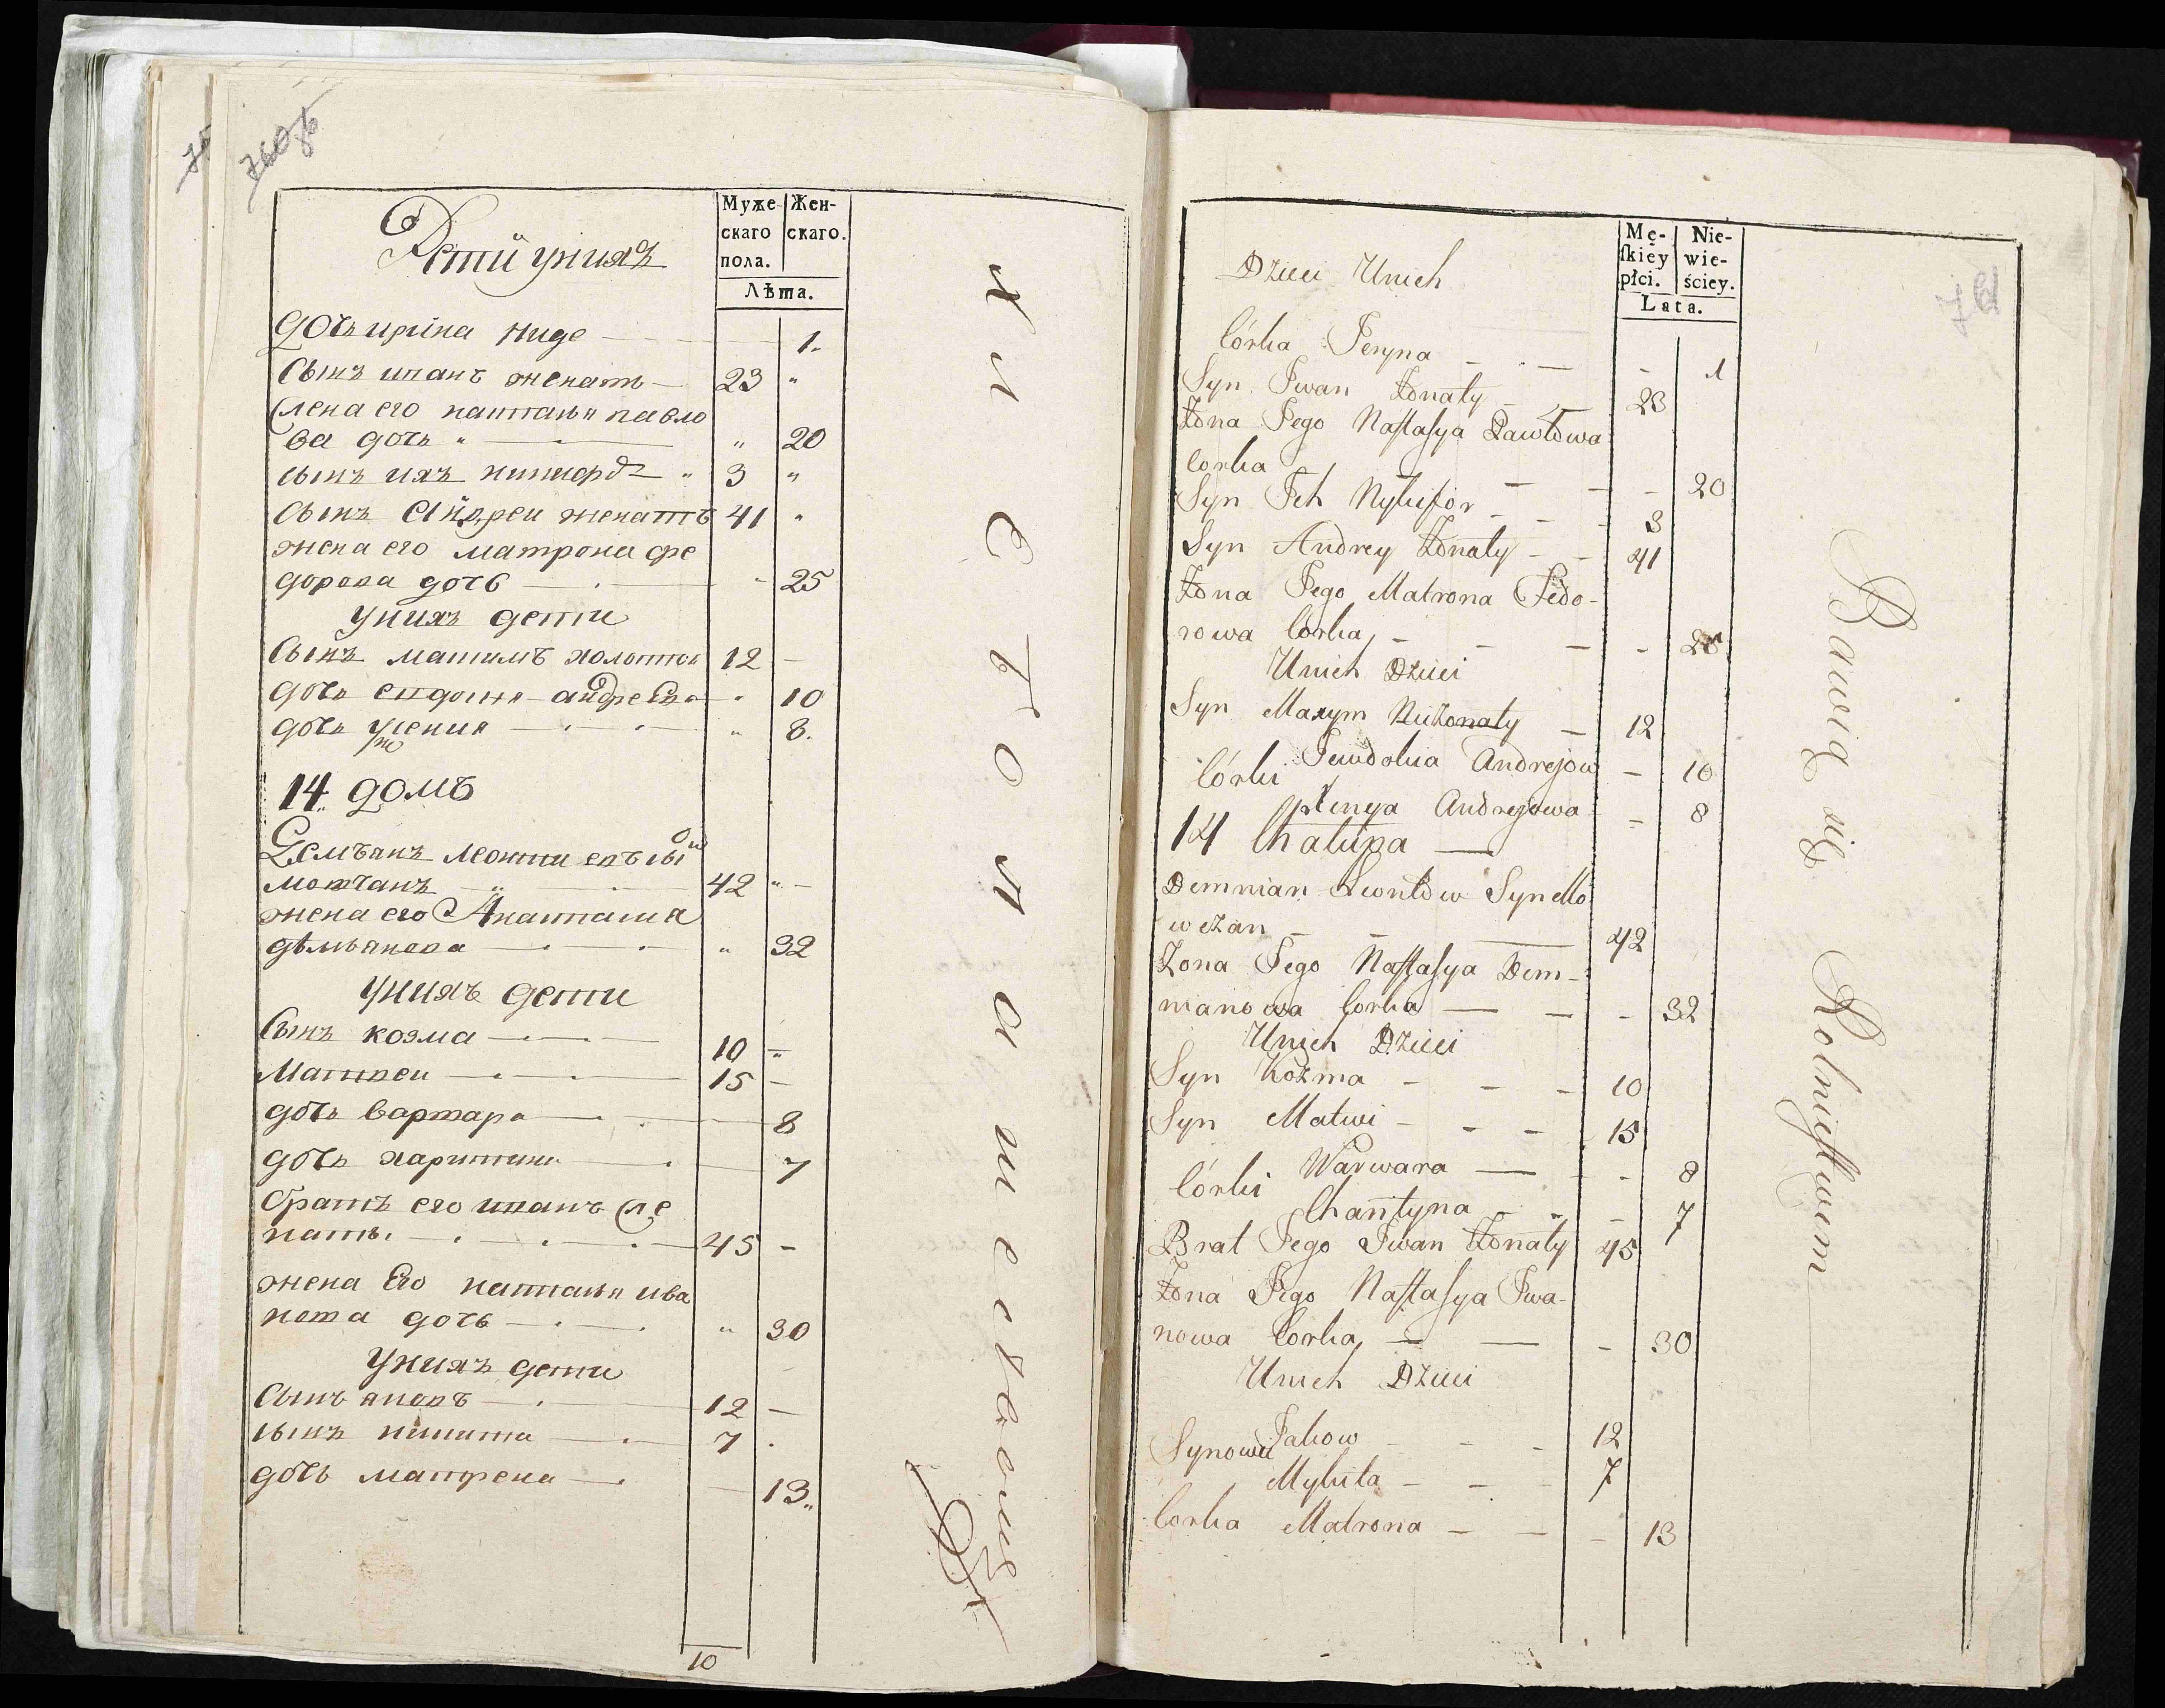 760б
Муже- Жен-
скаго скаго.
пола.
Лѣта.
Дети униxъ
дочь ирина 1.
Сынъ иванъ женатъ — 23 "
жена его настасья павло
ва дочь " — " 20
сынъ ихъ никифоръ " 3 "
Сынъ Андреи женатъ 41 "
жена его матрона фе
дорова дочь — 25
униxъ дети
Сынъ максимъ холостои 12 —
дочь евдокия андреева 10
дочь — " 8.
14. домъ
Демьянъ леонтиевъ сынъ
мовчанъ — " — 42 " —
жена его Анастасия
демьянова — " 32
униxъ дети
Сынъ козма — 10 "
Матвеи — 15 —
дочь варвара — 8
дочь харитина — 7
братъ его иванъ же
натъ. — 45 —
жена Его настасья ива
нова дочь — " 30
униxъ дети
Сынъ яковъ — 12 —
сынъ никита — 7 .
дочь матрена — 13 "
10
хлебопашествомъ
761
Mę- Nie-
skiey wie-
płci. ściey.
Lata.
Dzieci Unich
Córka Jeryna — — - 1
Syn Iwan Żonaty — 23
Żona Jego Nastasya Pawłowa
Corka — — - 20
Syn Ich Nykifor - - - 3
Syn Andrey Żonaty - - 41
Żona Jego Matrona Fedo-
rowa Corka, - - — - 25
Unich Dzieci
Syn Maxym Nieżonaty — 12
Córki Jewdokia Andrejow — 10
Xenya Andrejowa - 8
14 Chałupa —
Demnian Leontow Syn Mo
wczan - - — 42
Żona Jego Nastasya Dem-
nianowa Corka — — - 32
Unich Dzieci
Syn Kozma - - - 10
Syn Matwi - - - 15
Córki Warwara — - 8
Charytyna - - - 7
Brat Jego Iwan Żonaty 45
Żona Jego Nastasya Iwa-
nowa Corka, — — - 30
Unich Dzieci
Synowie Jakow - - - 12
Mykita - - - 7
Corka Matrona - - - 13
Bawią się Rolnictwem —